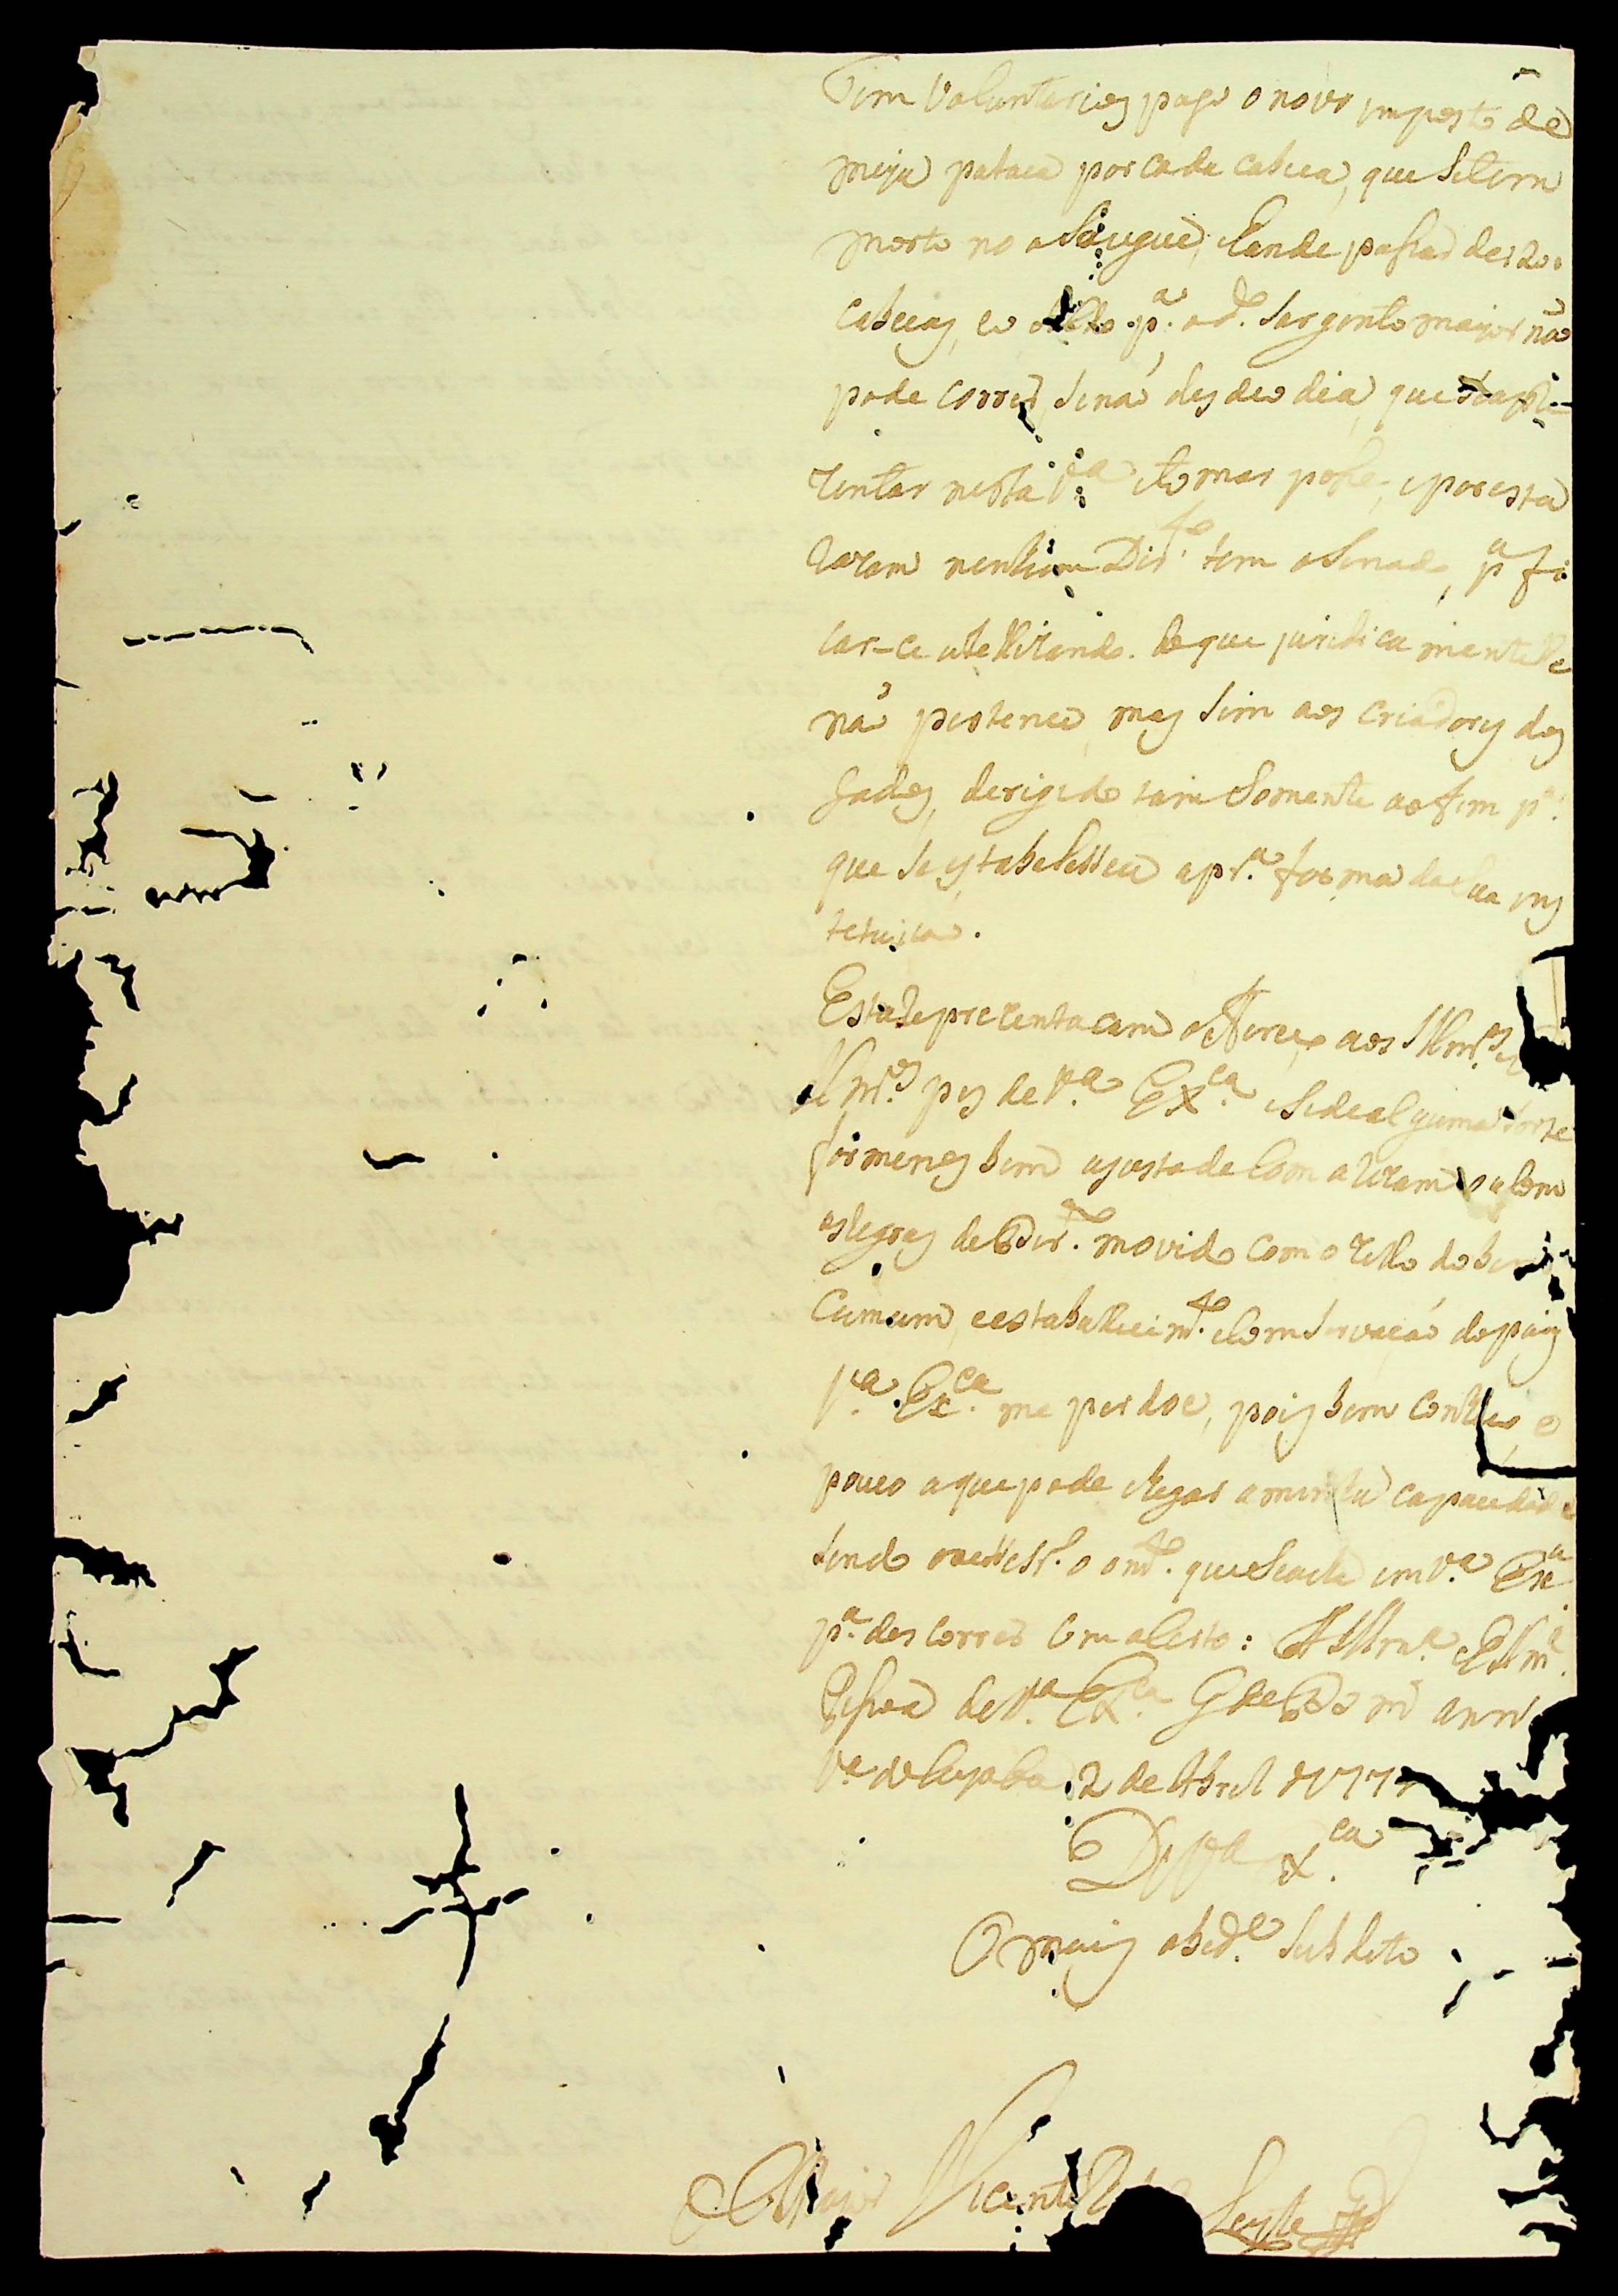 tem voluntarios pago o novo imposto de
meya pataca por cada cabeca, que se tem
morto no asougue,
cabecas, e o p.ª o d.º Sargento mayor naõ
pode correr, senaõ desde o dia, que
zentar nesta V.ª e tomar posse, e por esta
razam nenhum Dir.to tem o Senado, p.ª fi
car-ce utellizando do que juridica mente lhe
naõ pertence, mas sim aos criadores dos
gados, derigido tam somente ao fim p.ª
que se estabelessea a pr.ª forma da sua ins
tetuicaõ.
Esta Reprezentacam ofereco aos Illm.os e
Exm.os pes de V.ª Ex.ca e se de alguma sorte
for menos bem ajustada com a rezam, ou com
as legras de Dir.to movido com o zello do bem
Cumum, e estaballecim.to e Comservacaõ do pais
V.ª Ex.ca me perdoe, pois bem conheco o
pouco a que pode chegar a minha capacidade
sendo o ent.º que se acha em V.ª Ex.ca
p.ª descorrer com aserto: A Illm.ª e Exm.ª
Pessoa de V.ª Ex.ca G.de Deos m.s ann.s
V.ª do Cuyaba 2 de Abril de 177
De V.ª Ex.ca
O mais obed.e Subdito
Vicente Leyte